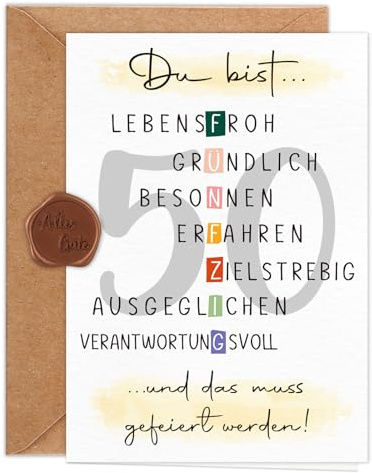 Du bist...
LEBENSFROH
GRÜNDLICH
BESONNEN
ERFAHREN
ZIELSTREBIG
AUSGEGLICHEN
VERANTWORTUNGSVOLL
50
...und das muss
gefeiert werden!
Alles
Gute